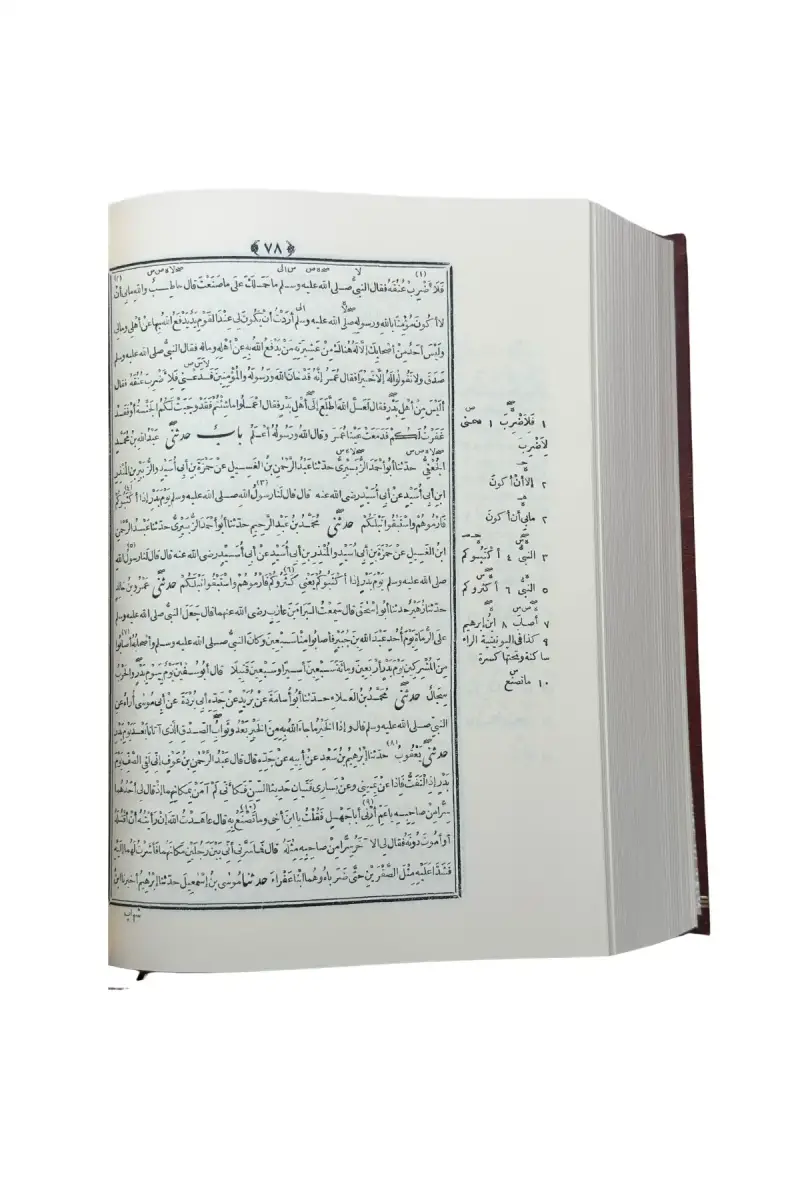 ﴿ ٧٨ ﴾
فَلَأَضْرِبَ عُنُقَهُ فقال النبيُّ صلى الله عليه وسلم ما حَمَلَكَ على ما صَنَعْتَ قال حاطِبٌ والله ما بي أنْ
لا أكونَ مُؤْمِنًا بالله ورسوله صلى الله عليه وسلم أرَدْتُ أنْ يَكُونَ لي عِنْدَ القَوْمِ يَدٌ يَدْفَعُ اللهُ بها عن أهْلي ومالي
ولَيْسَ أحَدٌ مِنْ أصْحابِكَ إلَّا لَهُ هُناكَ مِنْ عَشِيرَتِهِ مَنْ يَدْفَعُ اللهُ بِهِ عن أهْلِهِ ومالِهِ فقال النبيُّ صلى الله عليه وسلم
صَدَقَ ولا تَقُولُوا لَهُ إلَّا خَيْرًا فقال عُمَرُ إنَّهُ قَدْ خانَ اللهَ ورسولَهُ والمُؤْمِنِينَ فَدَعْنِي فَلِأَضْرِبَ عُنُقَهُ فقال
ألَيْسَ مِنْ أهْلِ بَدْرٍ فقال لَعَلَّ اللهَ اطَّلَعَ إلى أهْلِ بَدْرٍ فقال اعْمَلُوا ما شِئْتُمْ فَقَدْ وجَبَتْ لَكُمُ الجَنَّةُ أو فَقَدْ
غَفَرْتُ لَكُمْ فَدَمَعَتْ عَيْنا عُمَرَ وقال اللهُ ورسولُهُ أعْلَمُ باب حدثني عبدُ الله بنُ مُحَمَّدٍ
الجُعْفِيُّ حدثنا أبو أحْمَدَ الزُّبَيْرِيُّ حدثنا عبدُ الرَّحْمٰنِ بنُ الغَسِيلِ عن حَمْزَةَ بنِ أبي أُسَيْدٍ والزُّبَيْرِ بنِ المُنْذِرِ
ابنِ أبي أُسَيْدٍ عن أبي أُسَيْدٍ رضي الله عنه قال قال لَنا رسولُ الله صلى الله عليه وسلم يَوْمَ بَدْرٍ إذا أكْثَبُوكُمْ
فارْمُوهُمْ واسْتَبْقُوا نَبْلَكُمْ حدثني مُحَمَّدُ بنُ عبدِ الرحيم حدثنا أبو أحْمَدَ الزُّبَيْرِيُّ حدثنا عبدُ الرَّحْمٰنِ
ابنُ الغَسِيلِ عن حَمْزَةَ بنِ أبي أُسَيْدٍ والمُنْذِرِ بنِ أبي أُسَيْدٍ عن أبي أُسَيْدٍ رضي الله عنه قال قال لَنا رسولُ الله
صلى الله عليه وسلم يَوْمَ بَدْرٍ إذا أكْثَبُوكُمْ يَعْنِي كَثَرُوكُمْ فارْمُوهُمْ واسْتَبْقُوا نَبْلَكُمْ حدثني عَمْرُو بنُ خالِدٍ
حدثنا زُهَيْرٌ حدثنا أبو إسْحٰقَ قال سَمِعْتُ البَراءَ بنَ عازِبٍ رضي الله عنهما قال جَعَلَ النبيُّ صلى الله عليه وسلم
على الرُّماةِ يَوْمَ أُحُدٍ عبدَ الله بنَ جُبَيْرٍ فأصابُوا مِنَّا سَبْعِينَ وكان النبيُّ صلى الله عليه وسلم وأصحابُهُ أصابُوا
مِنَ المُشْرِكِينَ يَوْمَ بَدْرٍ أرْبَعِينَ ومِائَةً سَبْعِينَ أسِيرًا وسَبْعِينَ قَتِيلًا قال أبو سُفْيٰنَ يَوْمٌ بِيَوْمِ بَدْرٍ والحَرْبُ
سِجالٌ حدثني مُحَمَّدُ بنُ العَلاءِ حدثنا أبو أُسامَةَ عن بُرَيْدٍ عن جَدِّهِ أبي بُرْدَةَ عن أبي مُوسى أُراهُ عن
النبي صلى الله عليه وسلم قال وإذا الخَيْرُ ما جاءَ اللهُ بِهِ مِنَ الخَيْرِ بَعْدُ وثَوابُ الصِّدْقِ الَّذِي آتانا بَعْدَ يَوْمِ بَدْرٍ
حدثني يَعْقُوبُ حدثنا إبْرٰهِيمُ بنُ سَعْدٍ عن أبيهِ عن جَدِّهِ قال قال عبدُ الرَّحْمٰنِ بنُ عَوْفٍ إنِّي لَفِي الصَّفِّ يَوْمَ
بَدْرٍ إذِ الْتَفَتُّ فَإذا عن يَمِينِي وعن يَسارِي فَتَيانِ حَدِيثا السِّنِّ فَكَأَنِّي لَمْ آمَنْ بِمَكانِهِما إذْ قال لي أحَدُهُما
سِرًّا مِنْ صاحِبِهِ يا عَمِّ أرِنِي أبا جَهْلٍ فَقُلْتُ يا ابنَ أخِي وما تَصْنَعُ بِهِ قال عاهَدْتُ اللهَ إنْ رَأيْتُهُ أنْ أقْتُلَهُ
أو أمُوتَ دُونَهُ فقال لي الآخَرُ سِرًّا مِنْ صاحِبِهِ مِثْلَهُ قال فَما سَرَّنِي أنِّي بَيْنَ رَجُلَيْنِ مَكانَهُما فَأَشَرْتُ لَهُما إلَيْهِ
فَشَدَّا عَلَيْهِ مِثْلَ الصَّقْرَيْنِ حتَّى ضَرَباهُ وهُما ابْنا عَفْراءَ حدثنا مُوسى بنُ إسْمٰعِيلَ حدثنا إبْرٰهِيمُ أخبرنا ابنُ
شهاب
١ فَلِأَضْرِبَ ١
لِأَضْرِبَ
٢ إلا أنْ أكونَ
٢ ما بي أن أكونَ
٣ النبيُّ ٤ أكْثَبُوكم
٥ النبيُّ ٦ أكثروكم
٨ ابن إبرهيم
٩ كذا في اليونينية الراء
ساكنة وتحتها كسرة
١٠ ما تَصْنَع